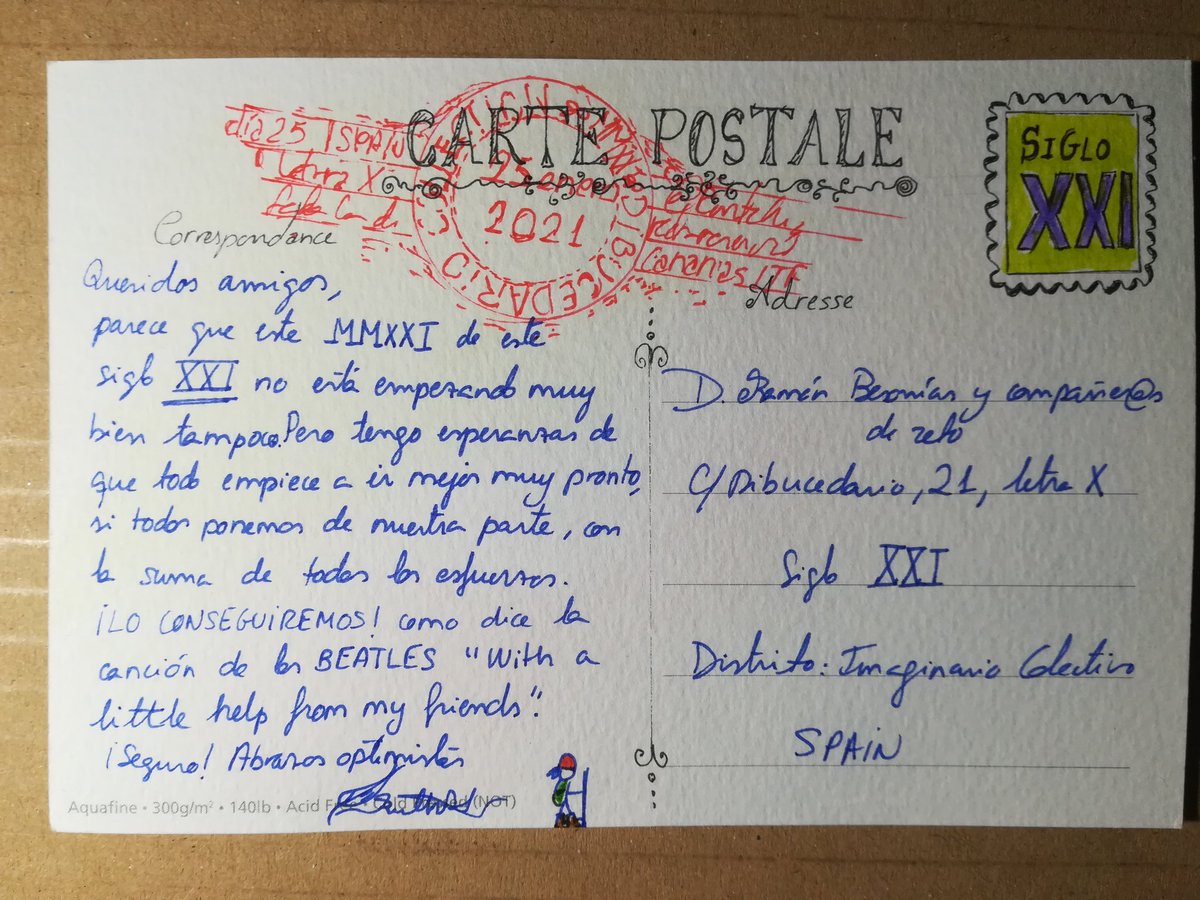 CARTE POSTALE
SIGLO
XXI
día 25 SPAIN
Letra X
25 enero
2021
Canarias
Correspondance
Queridos amigos,
parece que este MMXXI de este
siglo XXI no está empezando muy
bien tampoco. Pero tengo esperanzas de
que todo empiece a ir mejor muy pronto,
si todos ponemos de nuestra parte, con
la suma de todos los esfuerzos.
¡LO CONSEGUIREMOS! como dice la
canción de los BEATLES "With a
little help from my friends".
¡Seguro! Abrazos optimistas
Aquafine • 300g/m² • 140lb • Acid Free • Cold Pressed (NOT)
Adresse
D. Ramón Besonías y compañer@s
de reto
C/ Dibucedario, 21, letra X
Siglo XXI
Distrito: Imaginario Colectivo
SPAIN